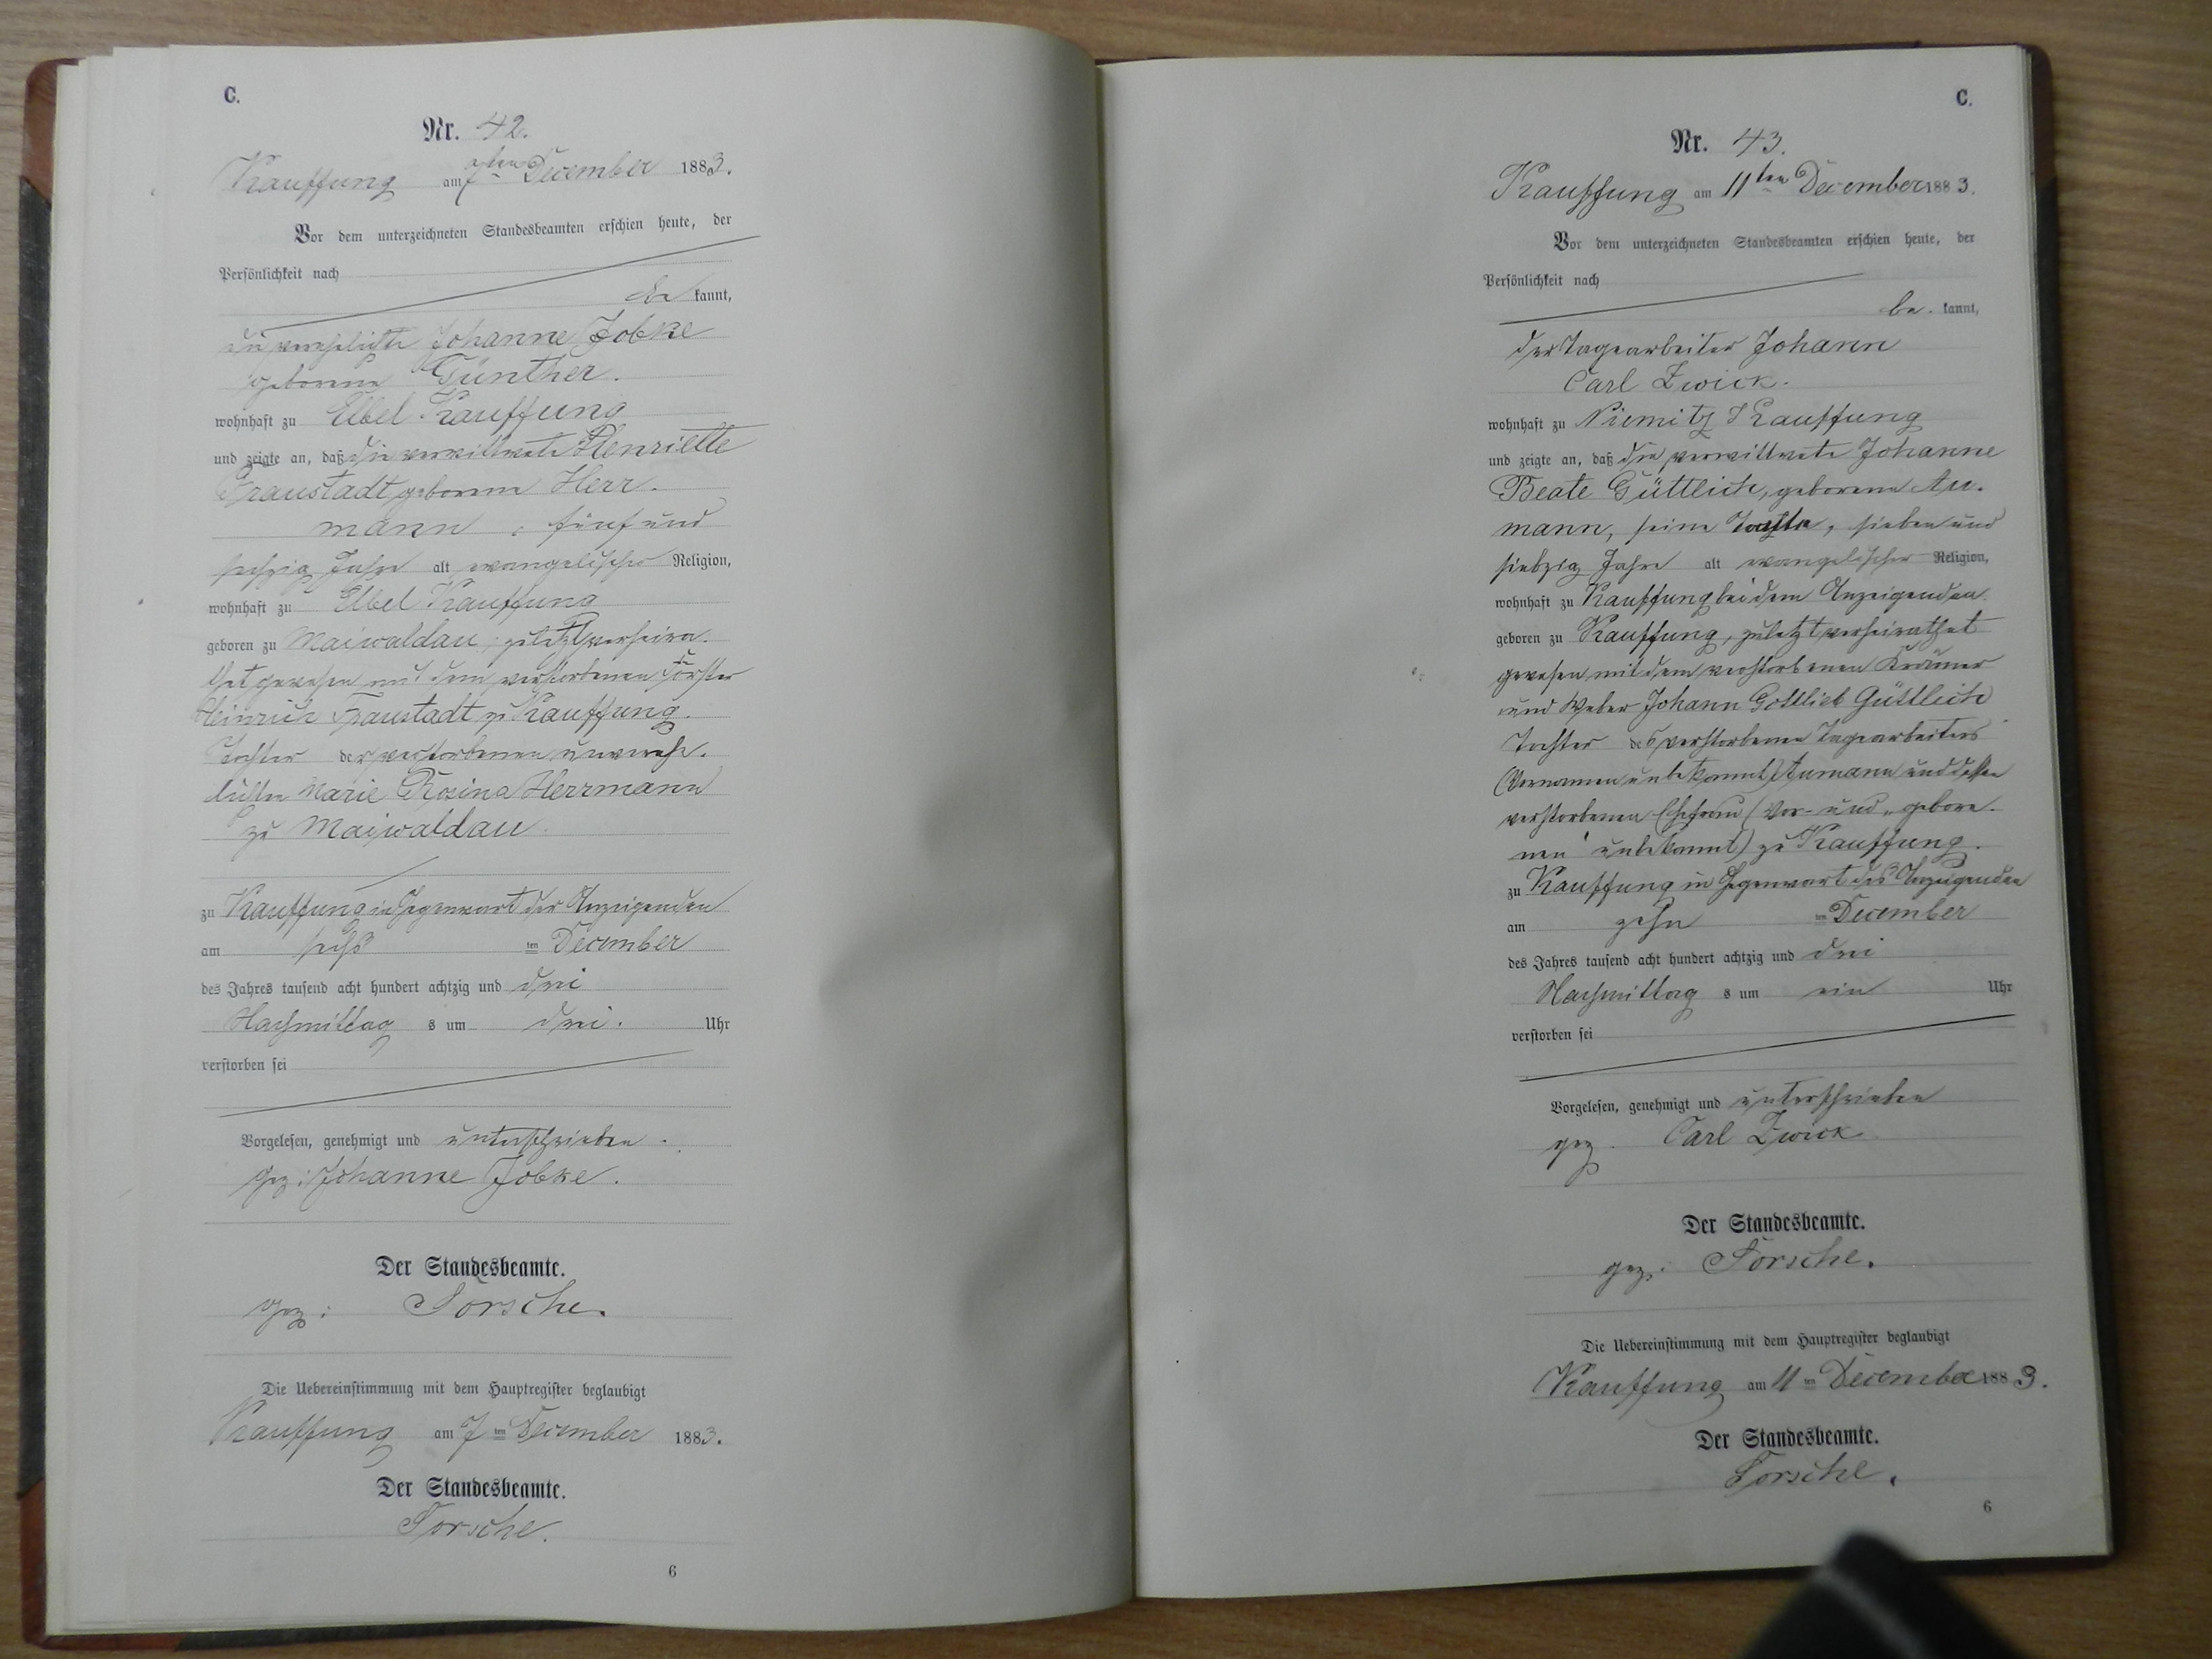 C.
Nr. 42.
Kauffung am 7ten December 1883.
Vor dem unterzeichneten Standesbeamten erschien heute, der
Persönlichkeit nach
be kannt,
die verehelichte Johanne Jobke
geborene Günther.
wohnhaft zu Elbel Kauffung
und zeigte an, daß die verwittwete Henriette
Fraustadt geborene Herr-
mann, fünf und
sechzig Jahre alt evangelischer Religion,
wohnhaft zu Elbel Kauffung
geboren zu Maiwaldau, zuletzt verheira-
thet gewesen mit dem verstorbenen Förster
Heinrich Fraustadt zu Kauffung.
Tochter der verstorbenen unverehe-
lichten Marie Rosina Herrmann
zu Maiwaldau.
zu Kauffung in Gegenwart der Anzeigenden
am sechs ten December
des Jahres tausend acht hundert achtzig und drei
Nachmittag s um drei. Uhr
verstorben sei
Vorgelesen, genehmigt und unterschrieben.
gez: Johanne Jobke.
Der Standesbeamte.
gez: Torsche.
Die Uebereinstimmung mit dem Hauptregister beglaubigt
Kauffung am 7 ten December 1883.
Der Standesbeamte.
Torsche.
6
C.
Nr. 43.
Kauffung am 11ten December 1883.
Vor dem unterzeichneten Standesbeamten erschien heute, der
Persönlichkeit nach
be. kannt,
der Tagearbeiter Johann
Carl Zwick.
wohnhaft zu Niemitz Kauffung
und zeigte an, daß die verwittwete Johanne
Beate Güttlich, geborene Au-
mann, seine, sieben und
siebzig Jahre alt evangelischer Religion,
wohnhaft zu Kauffung bei dem Anzeigenden
geboren zu Kauffung, zuletzt verheirathet
gewesen mit dem verstorbenen Krämer
und Weber Johann Gottlieb Güttlich
Tochter des verstorbenen Tagearbeiters
(Vornamen unbekannt) Aumann und dessen
verstorbenen Ehefrau (Vor- und „gebore-
nen" unbekannt) zu Kauffung.
zu Kauffung in Gegenwart des Anzeigenden
am zehn ten December
des Jahres tausend acht hundert achtzig und drei
Nachmittag s um ein Uhr
verstorben sei
Vorgelesen, genehmigt und unterschrieben
gez. Carl Zwick
Der Standesbeamte.
gez: Torsche.
Die Uebereinstimmung mit dem Hauptregister beglaubigt
Kauffung am 11 ten December 1883.
Der Standesbeamte.
Torsche.
6